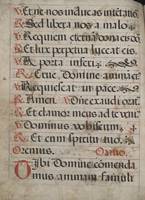 V Et ne nos inducas intētatiōe
R Sed libera nos a malo.
V Requiem eternā dona eis dn̄e
R Et lux perpetua luceat eis.
V A porta inferi
R Erue Domine animā eiˀ
V Requiescāt in pace.
R Amen. V Dn̄e exaudi orat
R Et clamor meus ad te veni
V Dominus vobiscum.
R Et cum spiritu tuo.
Oremus. Oratio.
Tibi Domine comenda
mus animam famuli